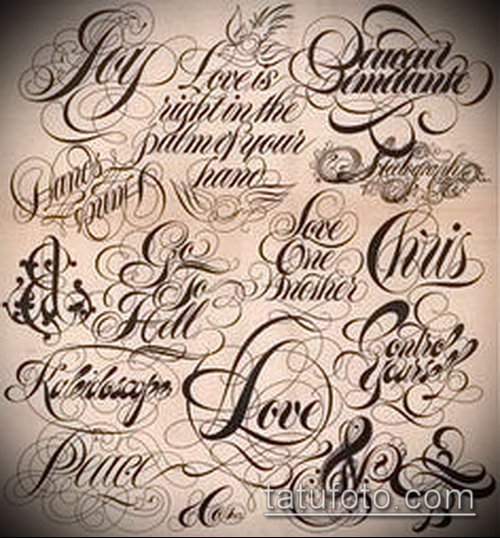 Joy
Love is
right in the
palm of your
hand
Go
To
Hell
Love
One
Another
Chris
Control
Yourself
Kaleidoscope
Love
Peace
tatufoto.com